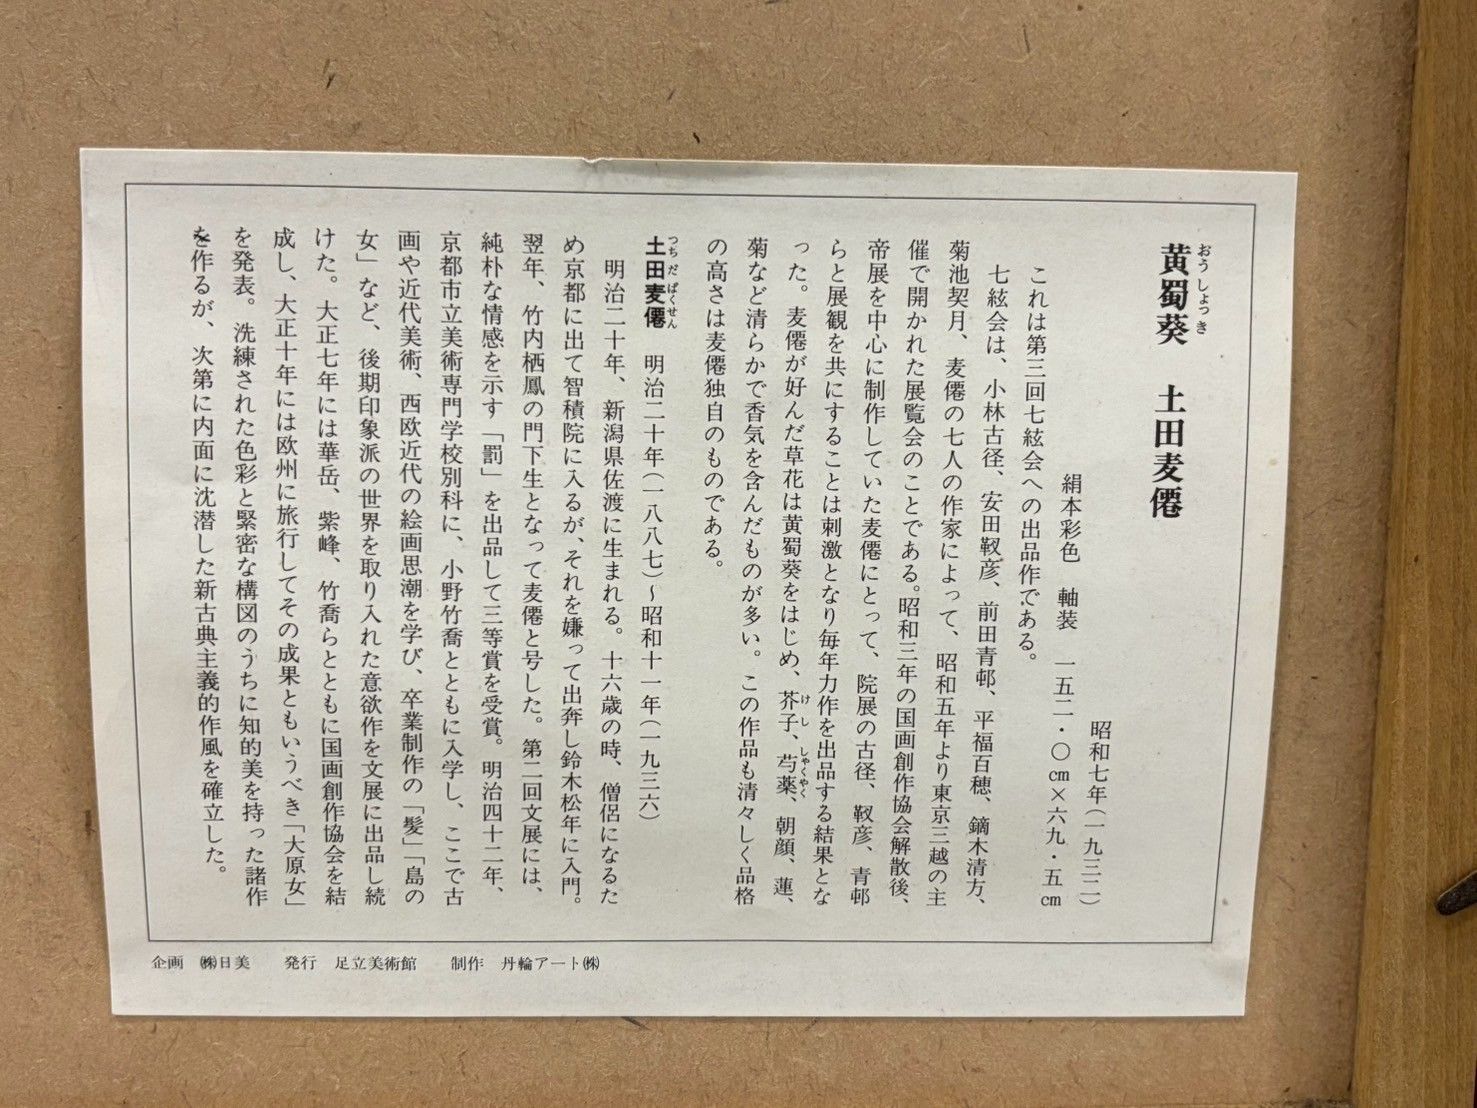 黄蜀葵 土田麦僊
おうしょっき
昭和七年(一九三二)
絹本彩色 軸装 一五二・〇cm×六九・五cm
これは第三回七絃会への出品作である。
七絃会は、小林古径、安田靫彦、前田青邨、平福百穂、鏑木清方、
菊池契月、麦僊の七人の作家によって、昭和五年より東京三越の主
催で開かれた展覧会のことである。昭和三年の国画創作協会解散後、
帝展を中心に制作していた麦僊にとって、院展の古径、靫彦、青邨
らと展観を共にすることは刺激となり毎年力作を出品する結果とな
った。麦僊が好んだ草花は黄蜀葵をはじめ、芥子、芍薬、朝顔、蓮、
けし しゃくやく
菊など清らかで香気を含んだものが多い。この作品も清々しく品格
の高さは麦僊独自のものである。
土田麦僊 明治二十年(一八八七)~昭和十一年(一九三六)
つちだばくせん
明治二十年、新潟県佐渡に生まれる。十六歳の時、僧侶になるた
め京都に出て智積院に入るが、それを嫌って出奔し鈴木松年に入門。
翌年、竹内栖鳳の門下生となって麦僊と号した。第二回文展には、
純朴な情感を示す「罰」を出品して三等賞を受賞。明治四十二年、
京都市立美術専門学校別科に、小野竹喬とともに入学し、ここで古
画や近代美術、西欧近代の絵画思潮を学び、卒業制作の「髪」「島の
女」など、後期印象派の世界を取り入れた意欲作を文展に出品し続
けた。大正七年には華岳、紫峰、竹喬らとともに国画創作協会を結
成し、大正十年には欧州に旅行してその成果ともいうべき「大原女」
を発表。洗練された色彩と緊密な構図のうちに知的美を持った諸作
を作るが、次第に内面に沈潜した新古典主義的作風を確立した。
企画 ㈱日美 発行 足立美術館 制作 丹輪アート㈱